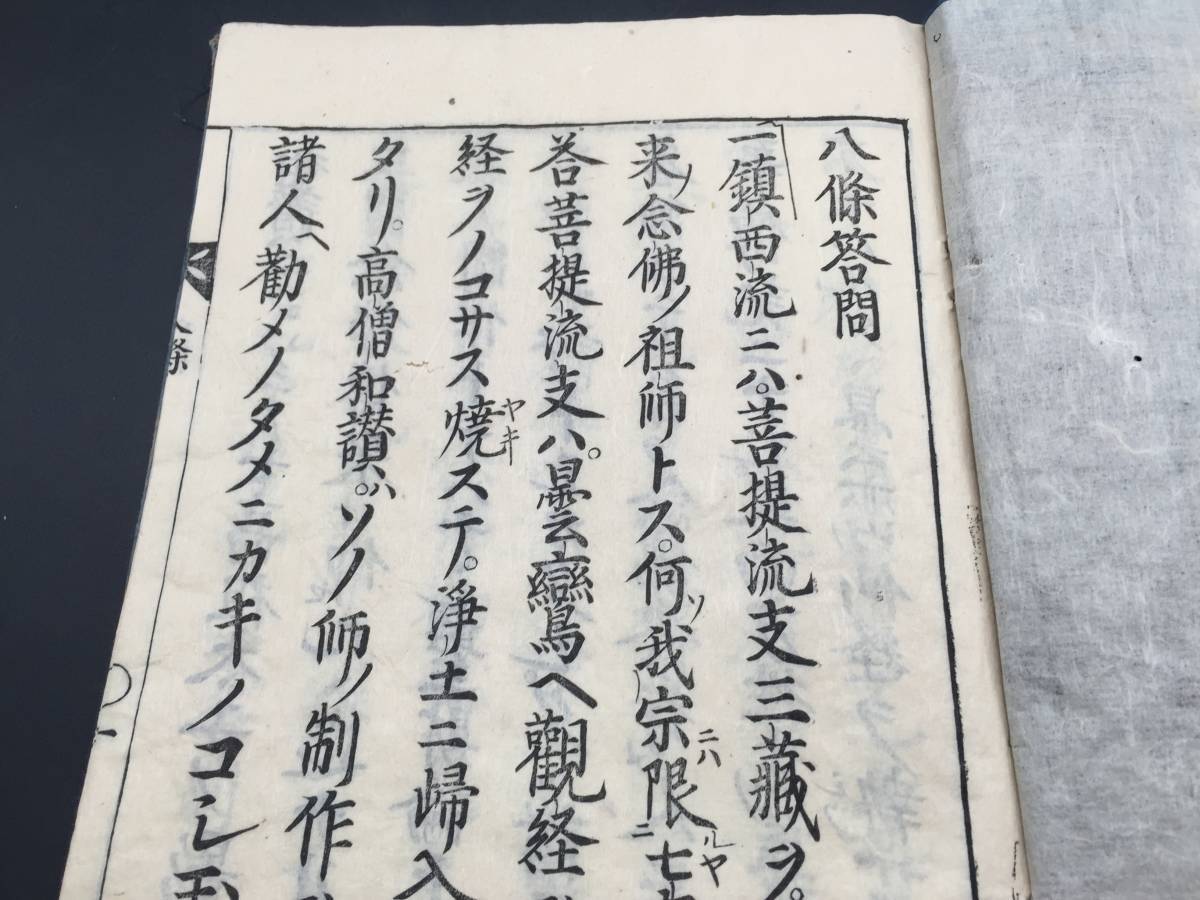 八條答問
一鎮西流ニハ。菩提流支三藏ヲ。
来ノ念佛ノ祖師トス。何ソ我宗ニハ限ルニヤ七
荅菩提流支ハ。曇鸞ヘ觀経
経ヲノコサス焼ヤキステ。淨土ニ歸入
タリ。高僧和讃ハ。ソノ師ノ制作
諸人ヘ勸メノタメニカキノコシ玉
八條